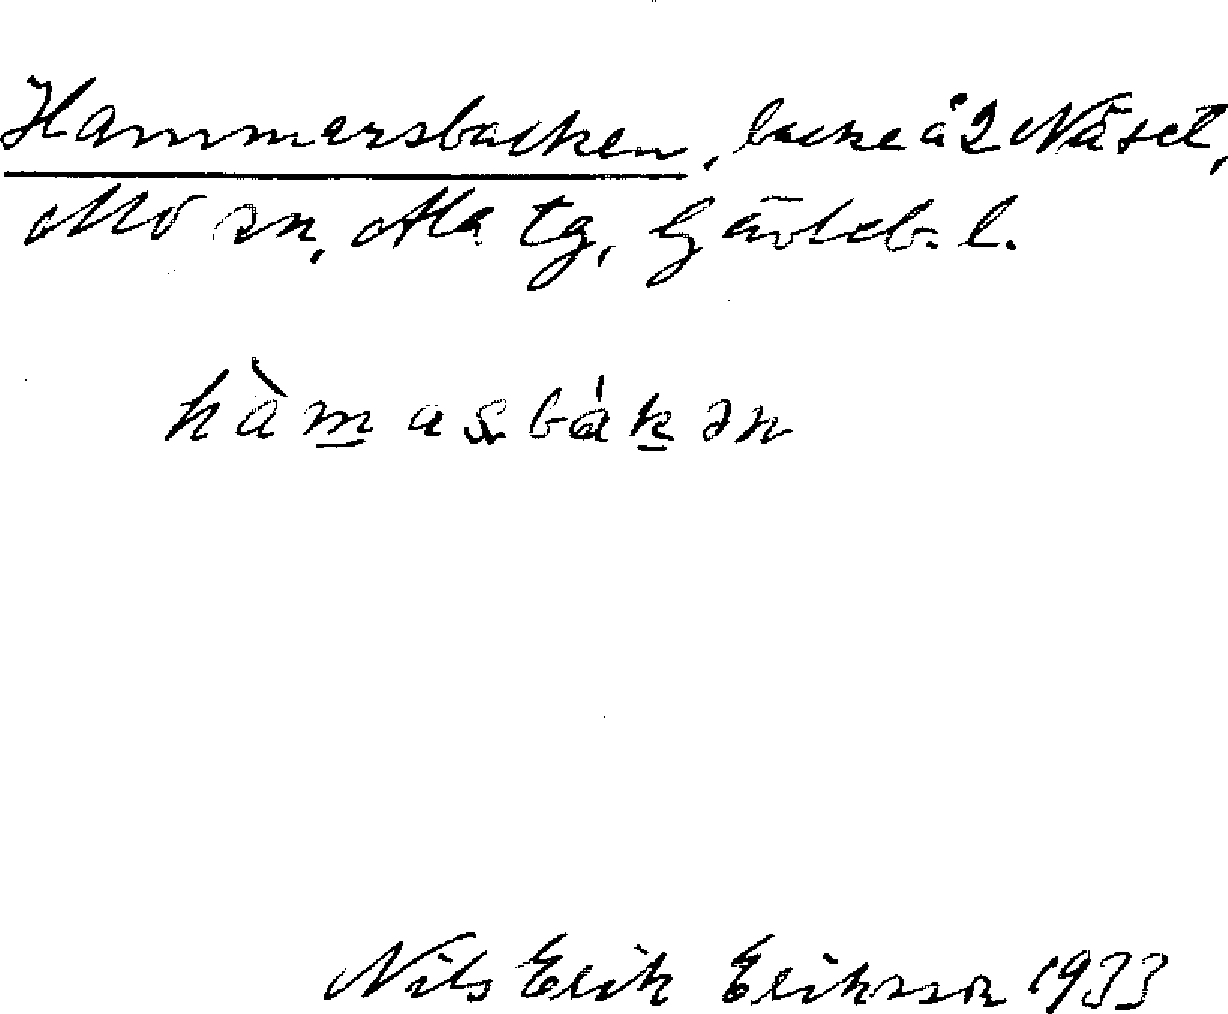 Hammersbacken, backe å 2 Näset,
Mo sn, Ala tg, Gävleb. l.
hàmasbákən
Nils Erik Eriksson 1933